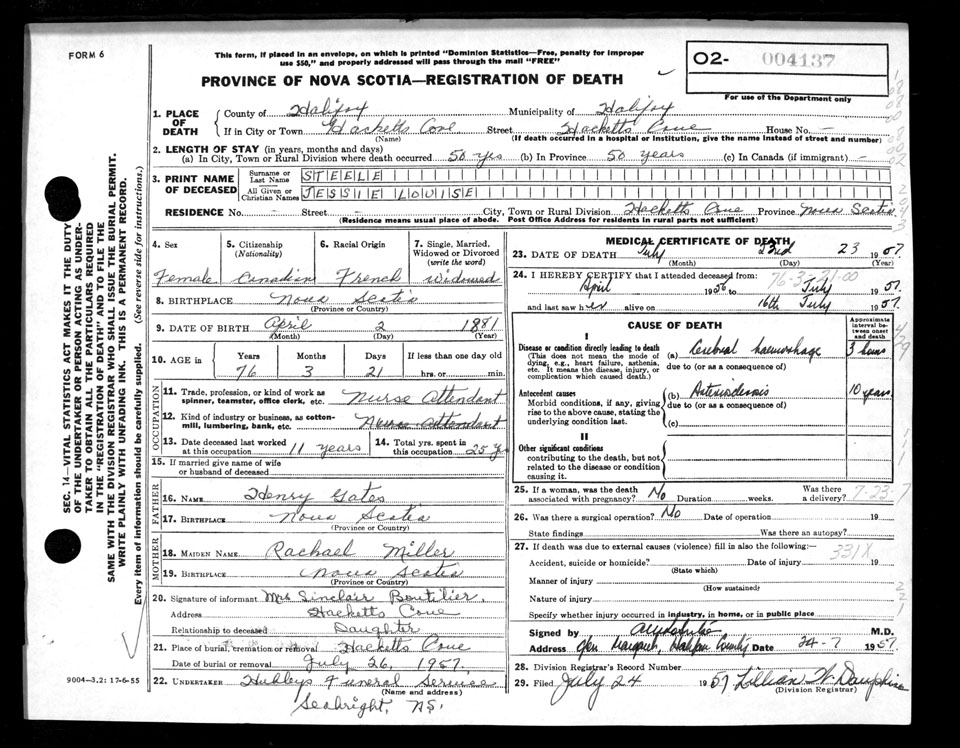 FORM 6
This form, if placed in an envelope, on which is printed "Dominion Statistics—Free, penalty for improper
use $50," and properly addressed will pass through the mail "FREE"
PROVINCE OF NOVA SCOTIA—REGISTRATION OF DEATH
O2- 004137
For use of the Department only
1. PLACE OF DEATH
County of Halifax Municipality of Halifax
If in City or Town Hacketts Cove Street Hacketts Cove House No. -
(Name) (If death occurred in a hospital or institution, give the name instead of street and number)
2. LENGTH OF STAY (in years, months and days)
(a) In City, Town or Rural Division where death occurred 50 yrs (b) In Province 50 years (c) In Canada (if immigrant) -
3. PRINT NAME OF DECEASED
Surname or Last Name STEELE
All Given or Christian Names JESSIE LOUISE
RESIDENCE No. - Street - City, Town or Rural Division Hacketts Cove Province Nova Scotia
(Residence means usual place of abode. Post Office Address for residents in rural parts not sufficient)
4. Sex 5. Citizenship (Nationality) 6. Racial Origin 7. Single, Married, Widowed or Divorced (write the word)
Female Canadian French Widowed
8. BIRTHPLACE Nova Scotia
(Province or Country)
9. DATE OF BIRTH April 2 1881
(Month) (Day) (Year)
10. AGE in Years Months Days If less than one day old
76 3 21 hrs. or min.
OCCUPATION
11. Trade, profession, or kind of work as
spinner, teamster, office clerk, etc. Nurse Attendant
12. Kind of industry or business, as cotton-
mill, lumbering, bank, etc. Nurse Attendant
13. Date deceased last worked
at this occupation 11 years
14. Total yrs. spent in
this occupation 25 y
15. If married give name of wife
or husband of deceased
FATHER
16. NAME Henry Gates
17. BIRTHPLACE Nova Scotia
(Province or Country)
MOTHER
18. MAIDEN NAME Rachael Miller
19. BIRTHPLACE Nova Scotia
(Province or Country)
20. Signature of informant Mrs Sinclair Boutilier.
Address Hacketts Cove
Relationship to deceased Daughter
21. Place of burial, cremation or removal Hacketts Cove
Date of burial or removal July 26, 1957.
22. UNDERTAKER Hubleys Funeral Service
(Name and address)
Seabright, N.S.
MEDICAL CERTIFICATE OF DEATH
23. DATE OF DEATH July 23rd 23 1957.
(Month) (Day) (Year)
24. I HEREBY CERTIFY that I attended deceased from:
76-3-21-00
April 1956 to July 1957.
and last saw her alive on 16th July 1957.
CAUSE OF DEATH
Approximate interval between onset and death
I
Disease or condition directly leading to death (a) Cerebral haemorrhage 3 hours
(This does not mean the mode of
dying, e.g., heart failure, asthenia,
etc. It means the disease, injury, or
complication which caused death.)
due to (or as a consequence of)
Antecedent causes (b) Arteriosclerosis 10 years
Morbid conditions, if any, giving
rise to the above cause, stating the
underlying condition last.
due to (or as a consequence of)
(c)
II
Other significant conditions
contributing to the death, but not
related to the disease or condition
causing it.
25. If a woman, was the death
associated with pregnancy? No Duration weeks. Was there
a delivery? 7-23-7
26. Was there a surgical operation? No Date of operation 19
State findings Was there an autopsy?
27. If death was due to external causes (violence) fill in also the following:—
331X
Accident, suicide or homicide? Date of injury 19
(State which)
Manner of injury
(How sustained)
Nature of injury
Specify whether injury occurred in industry, in home, or in public place
Signed by M.D.
Address Glen Margaret, Halifax County Date 24-7 1957.
28. Division Registrar's Record Number
29. Filed July 24 1957 Lillian W Dauphinee
(Division Registrar)
SEC. 14—VITAL STATISTICS ACT MAKES IT THE DUTY
OF THE UNDERTAKER OR PERSON ACTING AS UNDER-
TAKER TO OBTAIN ALL THE PARTICULARS REQUIRED
IN THE "REGISTRATION OF DEATH" AND TO FILE THE
SAME WITH THE DIVISION REGISTRAR WHO SHALL ISSUE THE BURIAL PERMIT.
WRITE PLAINLY WITH UNFADING INK. THIS IS A PERMANENT RECORD.
Every item of information should be carefully supplied. (See reverse side for instructions.)
9004—3.2: 17-6-55